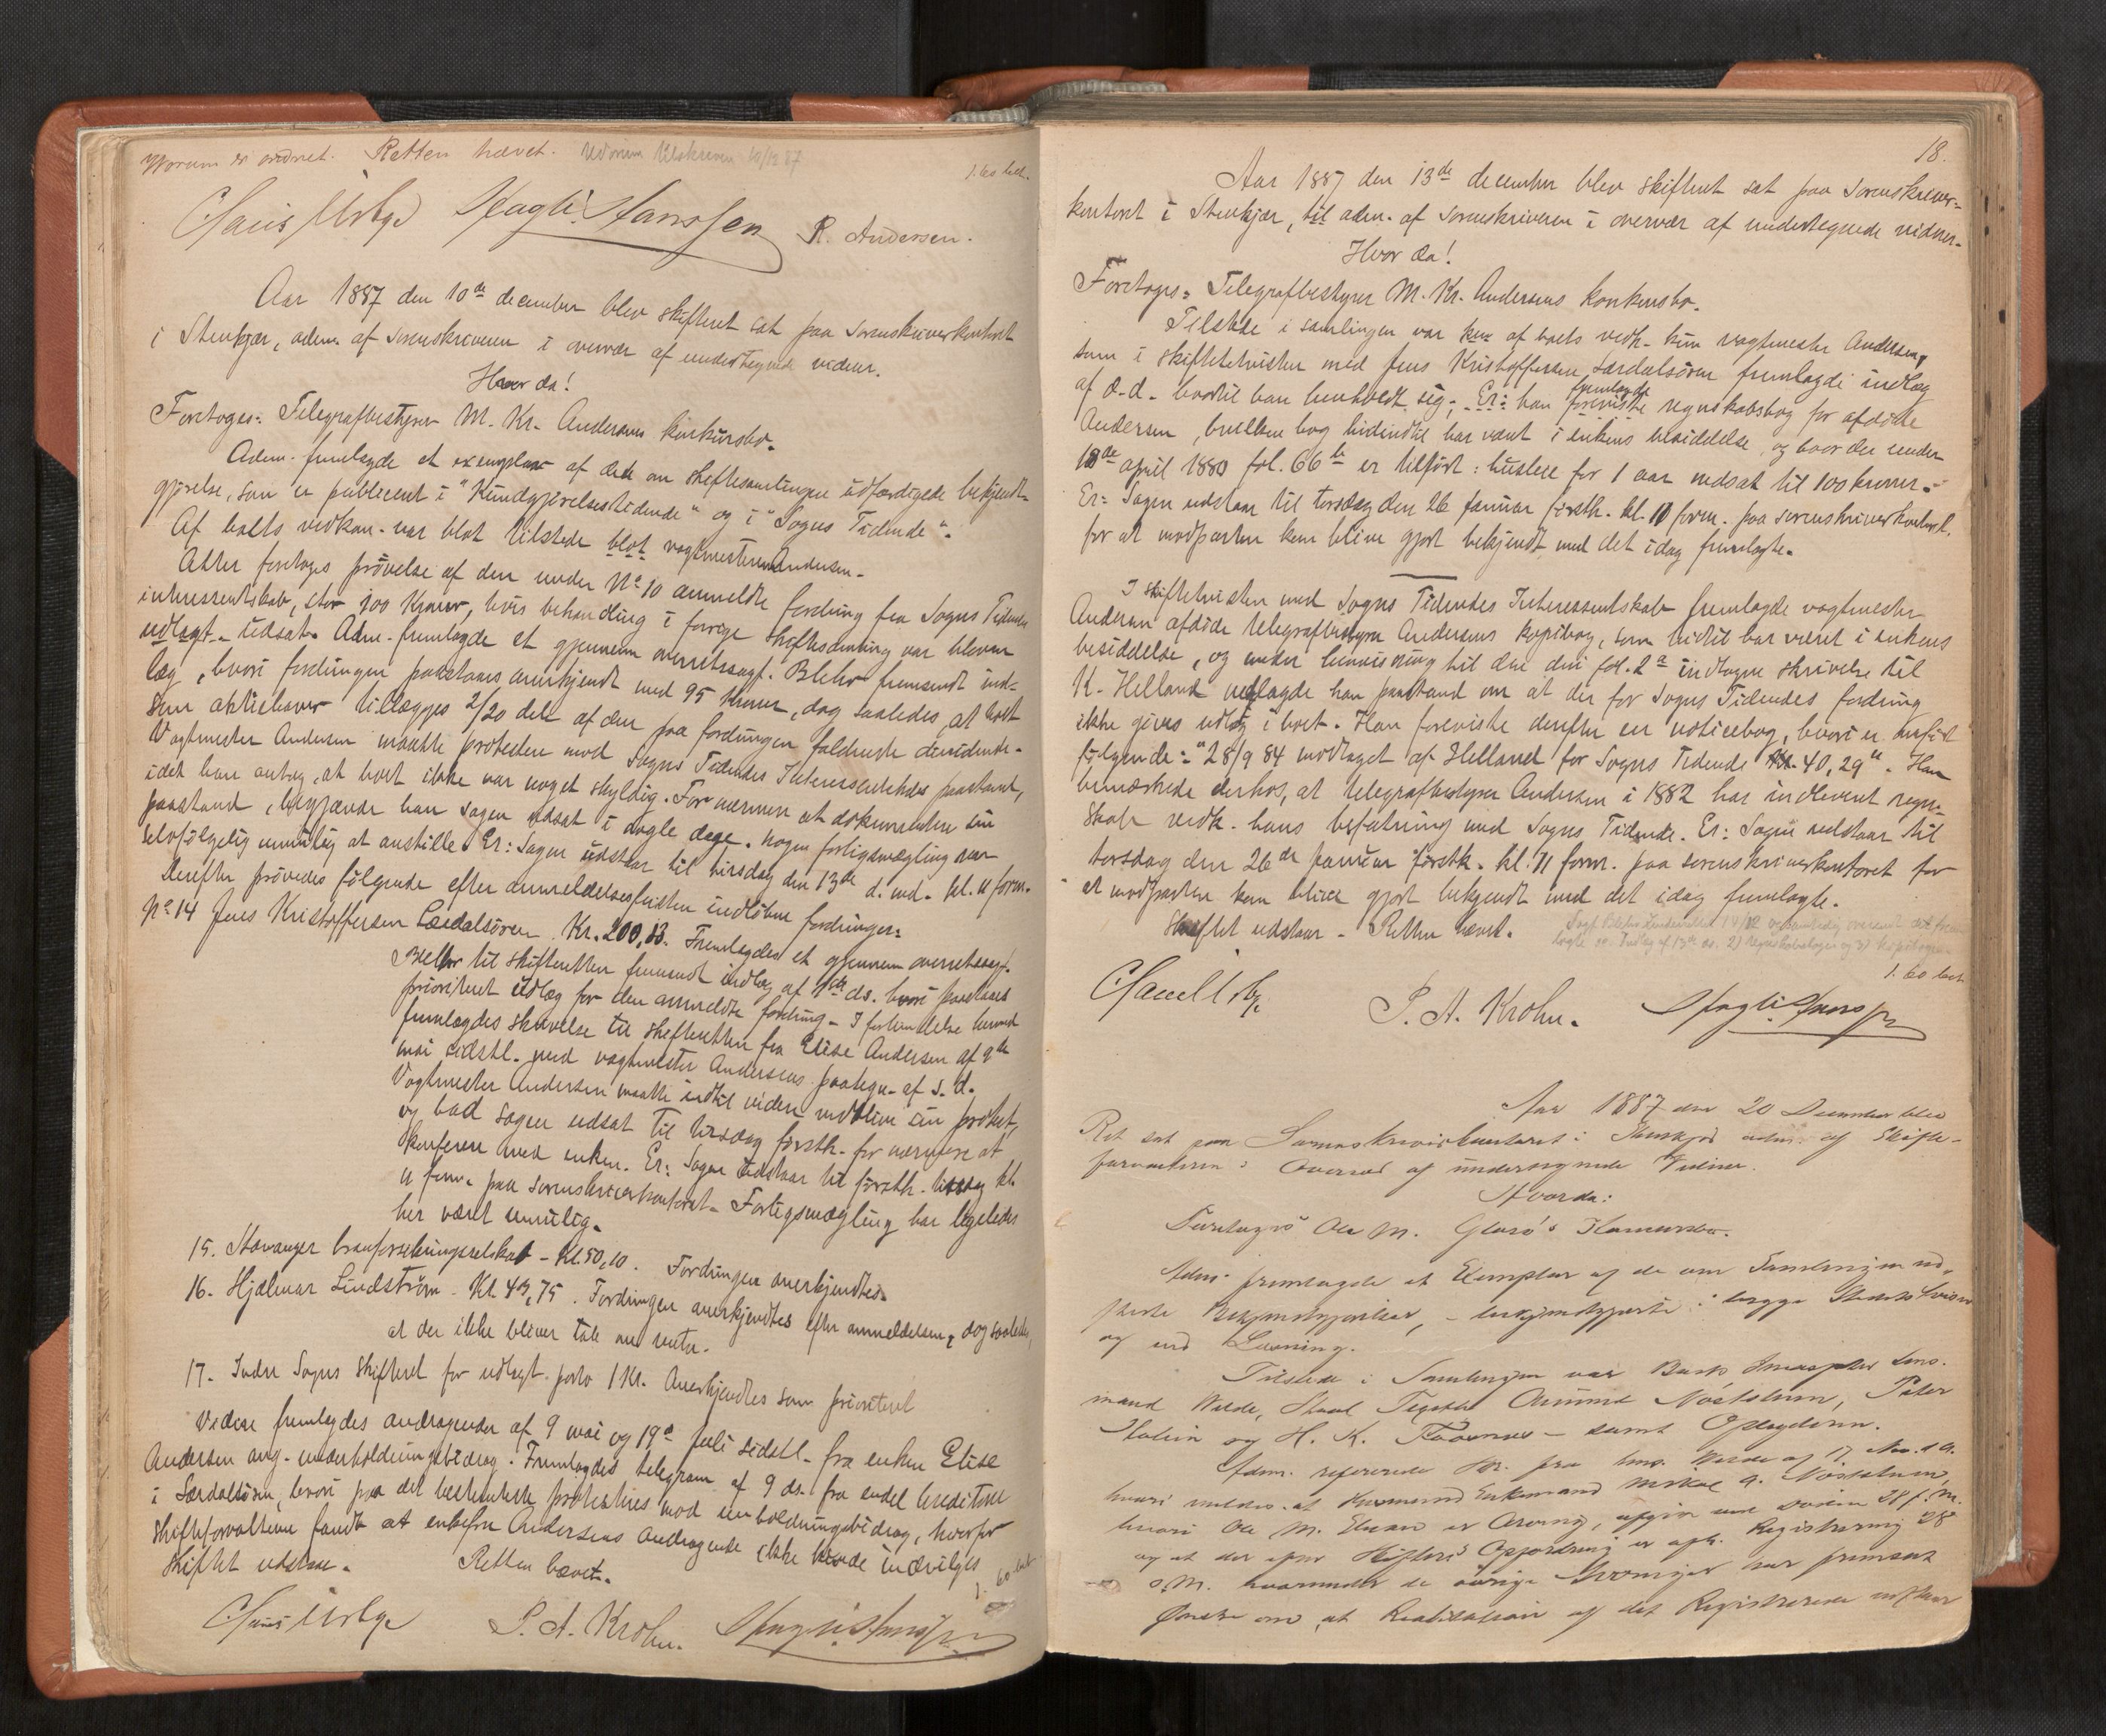 Hvorum er ordnet. Retten hævet. Udornm Udskreven 10/12 87
1. 60 bet.
Chris Urbye Magli Hanssen R. Andersen.
Aar 1887 den 10de december blev skifteret sat paa sorenskriverkontoret
i Stenkjær, adm. af sorenskriveren i overvær af undertegnede vidner.
Hvor da!
Foretoges: Telegrafbestyrer M. Kr. Andersens konkursbo.
Adm. fremlagde et exemplar af de om skiftesamlingen udfærdigede bekjendt-
gjørelse, som er publiceret i "Kundgjørelsestidende" og i "Sogns Tidende".
Af boets vedkom. var blot tilstede blot vagtmester Andersen.
Atter foretoges prøvelse af den under No 10 anmeldte fordring fra Sogns Tidendes
interessentskab, stor 100 Kroner, hvis behandling i forrige skiftesamling var bleven
udlagt. udsat. Adm. fremlagde et gjennem overretssagf. Blehr fremsendt ind-
læg, hvori fordringen paastaaes anerkjendt med 95 Kroner, dog saaledes, at boet
som aktiehaver tillægges 2/20 dele af den paa fordringen faldende dividende.
Vagtmester Andersen maatte protestere mod Sogns Tidendes Interessentskabs paastand,
idet han antog, at boet ikke var noget skyldig. For nærmere at dokumentere sin
paastand, begjærede han sagen udsat i nogle dage. Nogen forligsmægling var
selvfølgelig umulig at anstille. Er: Sagen udstaar til tirsdag den 13de d. md. kl. 11 form.
Derefter prøvedes følgende efter anmeldelsesfristen indløbne fordringer:
No 14 Jens Kristoffersen Lærdalsøren. Kr. 200,13. Fremlagdes et gjennem overretssagf.
Blehr til skifteretten fremsendt indlæg af 1ste ds. hvori paastaaes
prioriteret udlæg for den anmeldte fordring. I forbindelse hermed
fremlagdes skrivelse til skifteretten fra Elise Andersen af 9de
mai sidstl. med vagtmester Andersens paategn. af s. d.
Vagtmester Andersen maatte indtil videre vedblive sin protest,
og bad sagen udsat til tirsdag førstk. for nærmere at
konferere med enken. Er: Sagen udstaar til førstk. tirsdag kl.
11 form. paa sorenskriverkontoret. Forligsmægling har ligeledes
her været umulig.
15. Stavanger brandforsikringsselskab - Kr. 50,10. Fordringen anerkjendtes.
16. Hjalmar Lindstrøm - Kr. 43,75. Fordringen anerkjendtes efter anmeldelsen, dog saaledes,
at der ikke bliver tale om renter.
17. Indre Sogns skifteret for udlagt porto 1 Kr. Anerkjendtes som prioriteret
Videre fremlagdes andragender af 9 mai og 19de juli sidstl. fra enken Elise
Andersen ang. underholdningsbidrag. Fremlagdes telegram af 9 ds. fra endel kreditorer
i Lærdalsøren, hvori paa det bestemteste protesteres mod underholdningsbidrag, hvorfor
skifteforvalteren fandt at enkefru Andersens andragende ikke kunde indvilges
Skiftet udstaar. Retten hævet.
1. 60 bet
Chris Urbye P. A. Krohn. Magli Hanssen
18.
Aar 1887 den 13de december blev skifteret sat paa sorenskriver-
kontoret i Stenkjær, til adm. af sorenskriveren i overvær af undertegnede vidner.
Hvor da!
Foretoges: Telegrafbestyrer M. Kr. Andersens konkursbo.
Tilstede i samlingen var kun af boets vedk. kun vagtmester Andersen,
som i skiftetvisten med Jens Kristoffersen Lærdalsøren fremlagde indlæg
af d.d. hvortil han henholdt sig; Er: han foreviste fremlagde regnskabsbog for afdøde
Andersen, hvilken bog hidindtil har været i enkens besiddelse, og hvor der under
18de april 1880 fol. 66 b er tilført: husleie for 1 aar nedsat til 100 kroner.
Er: Sagen udstaar til torsdag den 26 januar førstk. kl. 11 form. paa sorenskriverkontoret,
for at modparten kan blive gjort bekjendt med det idag fremlagte.
I skiftetvisten med Sogns Tidendes Interessentskab fremlagde vagtmester
Andersen afdøde telegrafbestyrer Andersens kopibog, som hidtil har været i enkens
besiddelse, og under henvisning til den deri fol. 2 a indtagne skrivelse til
K. Helland nedlagde han paastand om at der for Sogns Tidendes fordring
ikke gives udlæg i boet. Han foreviste derefter en noticebog, hvori er anført
følgende: "28/9 84 modtaget af Helland for Sogns Tidende Kr. 40,29". Han
bemærkede derhos, at telegrafbestyrer Andersen i 1882 har indleveret regn-
skab vedk. hans befatning med Sogns Tidende. Er: Sagen udstaar til
torsdag den 26de januar førstk. kl. 11 form. paa sorenskriverkontoret for
at modparten kan blive gjort bekjendt med det idag fremlagte.
Skiftet udstaar - Retten hævet.
1. 60 bet
Chr Urbye P. A. Krohn. Magli Hanssen
Aar 1887 den 20 December blev
Ret sat paa Sorenskriverkontoret i Stenkjær adm. af Skifte-
forvalteren i Overvær af undersignede Vidner.
Hvorda:
Foretoges Ole M. Glærø's Konkursbo.
Adm. fremlagde et Exemplar af de om Samlingen ud-
færdigede Bekjendtgjørelser, - bekjendtgjorte i begge Stedets Aviser
og ved Læsning.
Tilstede i Samlingen var Boets Inkassator Lens-
mand Welde, Amund Nøstelum, Peter
Holien og H. K. Foosnæs - samt Opsydderen.
Adm. refererede Skr. fra Lens. Welde af 17 Nov. d. A.
hvori meldes at Enkemand Mikal A. Nøstelum,
hvori Ole M. er Arving, afgik ved Døden 28 f. M.
og at der efter Skifterets Opfordring er afh. Registrering 28
s. M. hvorunder de øvrige Arvinger har fremsat
Ønske om, at Realisation af det Registrerede